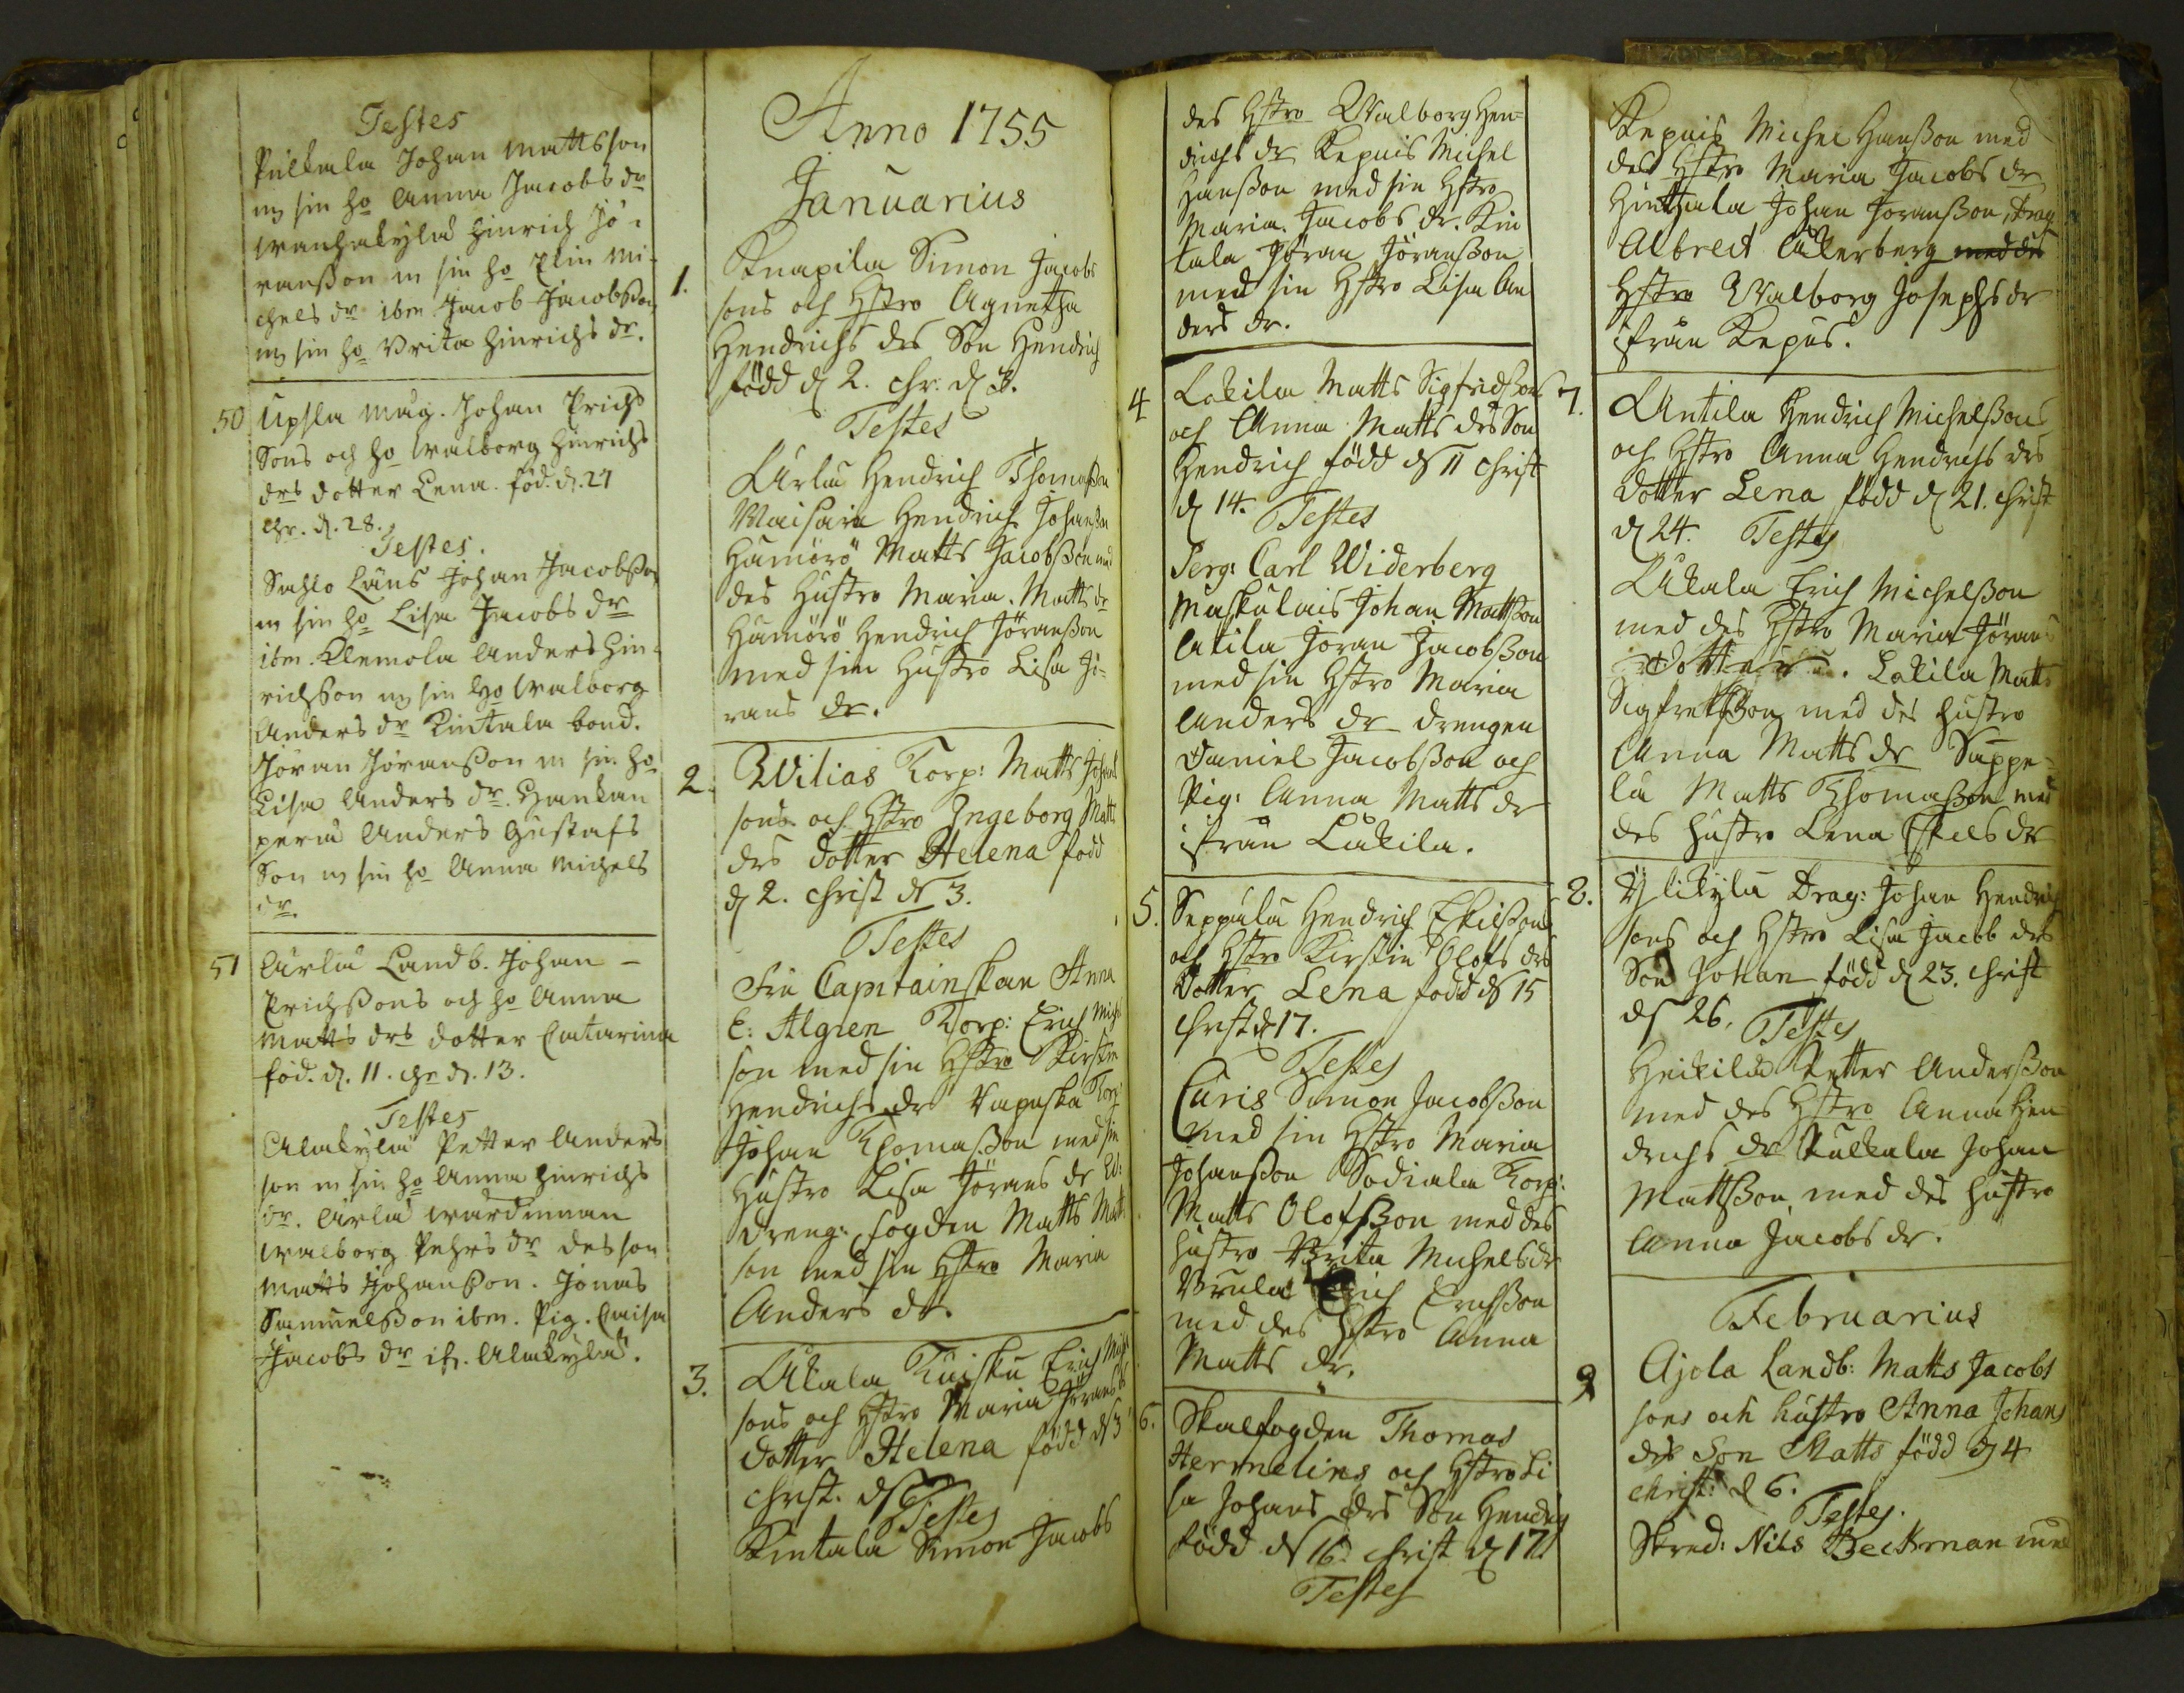 Testes
Pulkala Johan Mattsson
m sin ho Anna Jacobs dr
Wanhakylä Hinrich Jö-
ransson m sin ho Elin Mi-
chels dr ibm Jacob Jacobsson
m sin ho Brita Hinrichs dr.
50 Upsla Mag. Johan Erichs
Sons och ho Walborg Hinrichs
drs dotter Lena. föd. d. 27
Chr. d. 28.
Testes.
Sahlo Läns Johan Jacobsson
m sin ho Lisa Jacobs dr
ibm. Klemola Anders Hin-
richsson m sin ho Walborg
Anders dr Kintala bond.
Jöran Jöransson m sin ho
Lisa Anders dr. Hankan
perä Anders Gustafs
Son m sin ho Anna Michels
dr.
51 Arla Landb. Johan -
Erichssons och ho Anna
Matts drs dotter Catarina
föd. d. 11. chr d. 13.
Testes
Alakylä Petter Anders
son m sin ho Anna Hinrichs
dr. Arla wärdinnan
Walborg Pehrs dr des son
Matts Johansson. Jonas
Samuelsson ibm. Pig. Caisa
Jacobs dr if. Alakylä.
Anno 1755
Januarius
1. Knapila Simon Jacobs
sons och Hstro Agnetha
Hendrichs des Son Hendrich
född d 2. chr. d 3.
Testes
Arla Hendrich Thomasson
Waisari Hendrich Johansson
Hamörö Matts Jacobsson med
des Hustro Maria Matts dr
Hamörö Hendrich Jöransson
med sin Hustro Lisa Jö-
rans dr.
2. Wilias Korp: Matts Johans
sons och Hstro Ingeborg Matts
drs dotter Helena född
d 2. christ d 3.
Testes
Fru Capitainskan Anna
E: Algren Korp: Erich Michels
son med sin Hstro Kirstin
Hendrichs dr Vapaska Korp:
Johan Thomasson med sin
Hustro Lisa Jörans dr
dreng: fogden Matts Matts
son med sin Hstro Maria
Anders dr.
3. Akala Kuisku Erich Michels
sons och Hstro Maria Jörans drs
dotter Helena född d 3
christ. d 6
Testes
Kintala Simon Jacobs
des Hstro Walborg Hen-
drichs dr Kepuis Michel
Hansson med sin Hstro
Maria Jacobs dr. Kin
tala Jöran Jöransson
med sin Hstro Lisa An
ders dr.
4 Lakila Matts Sigfridssons
och Anna Matts des Son
Hendrich född d 11 christ
d 14. Testes
Serg: Carl Widerberg
Maskulais Johan Mattsson
Akila Jöran Jacobsson
med sin Hstro Maria
Anders dr drengen
Daniel Jacobsson och
Pig: Anna Matts dr
ifrån Lakila.
5. Seppälä Hendrich Eskilssons
och Hstro Kirstin Olofs drs
Dotter Lena född d 15
christ d 17.
Testes
Curis Simon Jacobsson
med sin Hstro Maria
Johansson Sodiala Korp:
Matts Olofsson med des
hustro Brita Michels dr
Erich Erichsson
med des Hstro Anna
Matts dr.
6. Skalfogden Thomas
Hermelins och Hstro Li
sa Johans drs Son Hendrich
född d 16. christ d 17
Testes
Kepuis Michel Hansson med
des Hstro Maria Jacobs dr
Hinthala Johan Jöransson, Drag
Albrect Åkerberg med des
Hstro Walborg Josephs dr
ifrån Kepus.
7. Antila Hendrich Michelssons
och Hstro Anna Hendrichs drs
dotter Lena född d 21. christ
d 24. Testes
Akala Erich Michelsson
med des Hstro Maria Jörans
dotter. Lakila Matts
Sigfredsson med des Hustro
Anna Matts dr Sappe-
la Matts Thomasson med
des Hustro Lena Eskels dr
8. Ylikylä Drag: Johan Hendrich
sons och Hstro Lisa Jacob drs
Son Johan född d 23. christ
d 26. Testes
Heikilä Petter Andersson
med des Hstro Anna Hen
drichs dr Pulkala Johan
Mattsson med des Hustro
Anna Jacobs dr.
Februarius
9 Ajola Landb: Matts Jacobs
sons och hustro Anna Johans
drs Son Matts född d 4
christ: d 6.
Testes.
Skred: Nils Beckman med